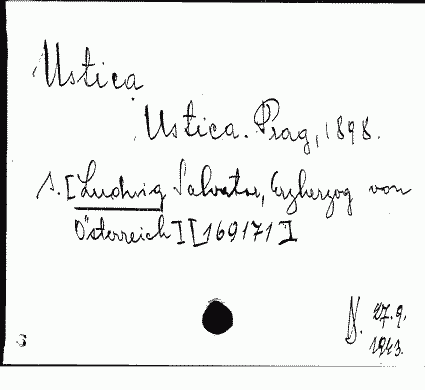 Ustica
Ustica. Prag, 1898.
s. [Ludwig Salvator, Erzherzog von
Österreich] [169171]
27.9.
1943.